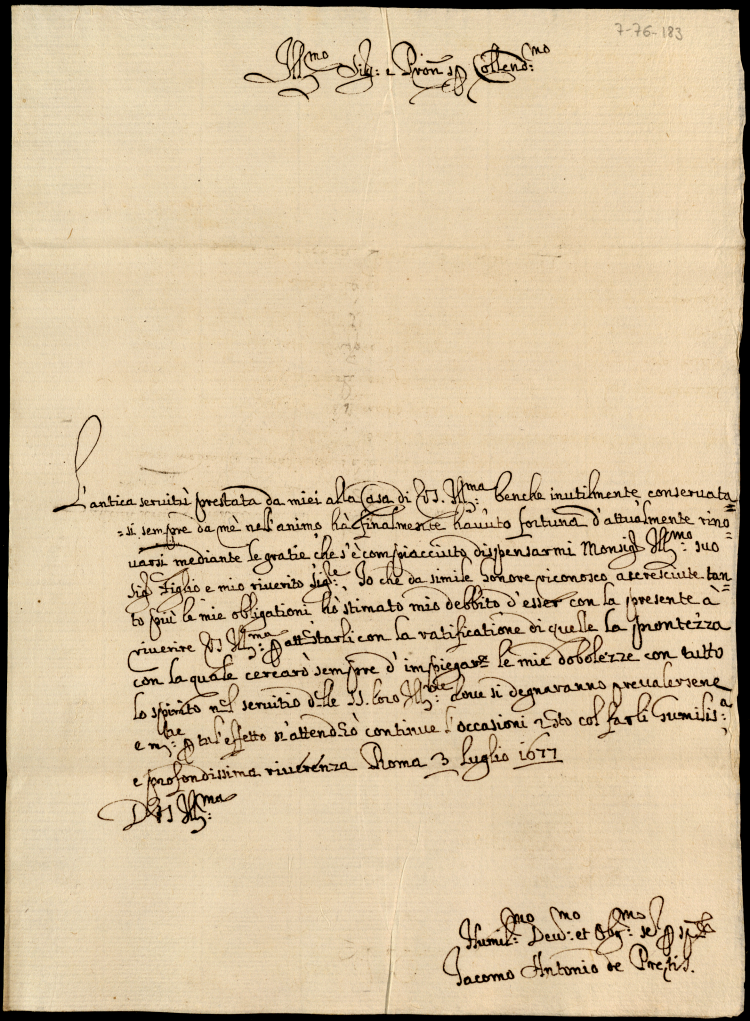 7-76-183
Ill.mo Sig.r e Pron p Collend:mo
L'antica servitù prestata da miei alla Casa di VS. Ill:ma benche inutilmente conservata=
=si sempre da mè nell'animo hà finalmente havuto fortuna d'attualmente rino=
varsi mediante le gratie che s'è compiacciuto dispensarmi Monsig.r Ill:mo suo
Sig. Figlio e mio riverito Sig:re. Io che da simile honore riconosco accresciute tan=
to più le mie obligationi hò stimato mio debbito d'esser con la presente à
riverire VS Ill:ma p attestarli con la ratificatione di quelle la prontezza
con la quale cercarò sempre d'impiegare le mie dobolezze con tutto
lo spirito nel servitio delle SS. loro Ill:me dove si degnaranno prevalersene
e p tal'effetto n'attenderò continue l'occasioni resto col farli humilis:a
e profondissima riverenza Roma 3 luglio 1677
D VS Ill:ma
Humil:mo Dev:mo et Obg:mo se p
Iacomo Antonio de Pretis.